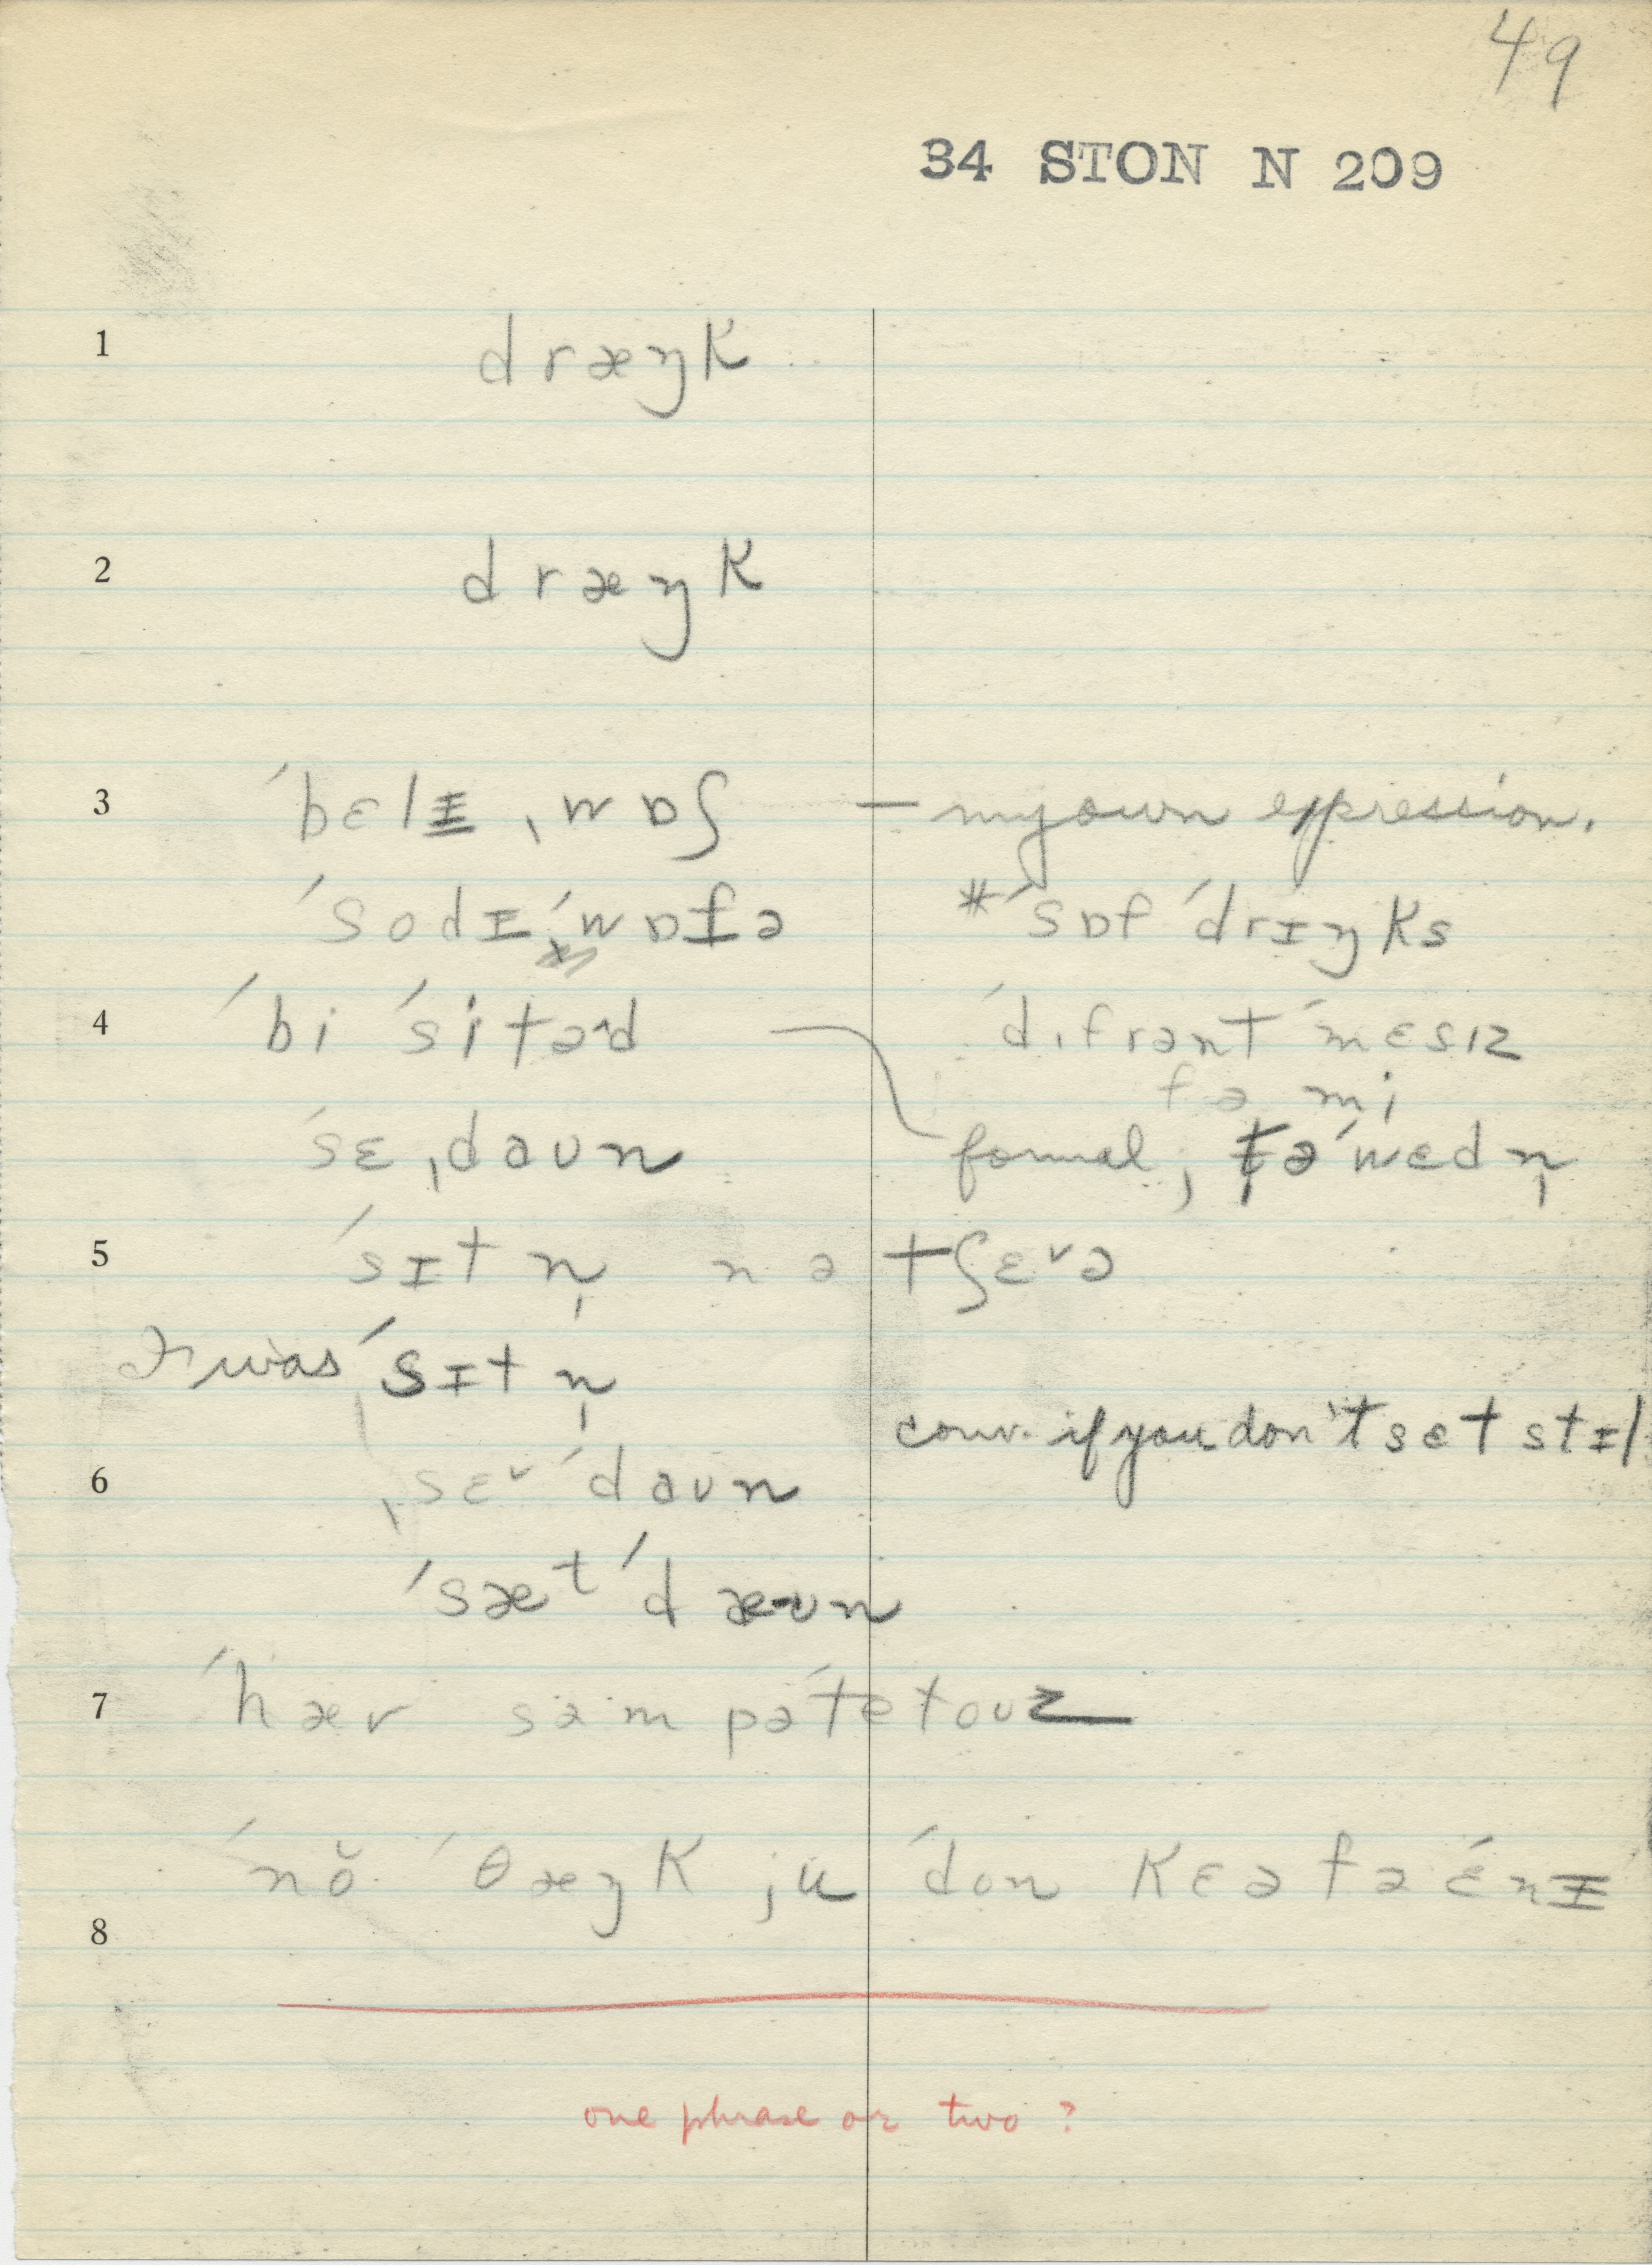 49
34 STON N 209
1 dræŋk
2 dræŋk
3 ˈbɛlɪ ˌwɒʃ — my own expression.
ˈsodɪ ˈwɒtə *ˈsɒf ˈdrɪŋks
4 ˈbi ˈsitəd ˈdɪfrənt ˈmɛsɪz
fə mi
ˈsɛˌdaun formal, tə ˈwɛdn̩
5 ˈsɪtn̩ n ə tʃɛˇə
I was ˈsɪtn̩
conv. if you don't sɛt stɪl
6 ˌsɛˇ ˈdaun
ˈsæᵗ ˈdæun
7 ˈhæv səm pəˈtetouz
ˈnŏ ˈθæŋk ju ˈdon kɛə fə ˈɛnɪ
8
one phrase or two?